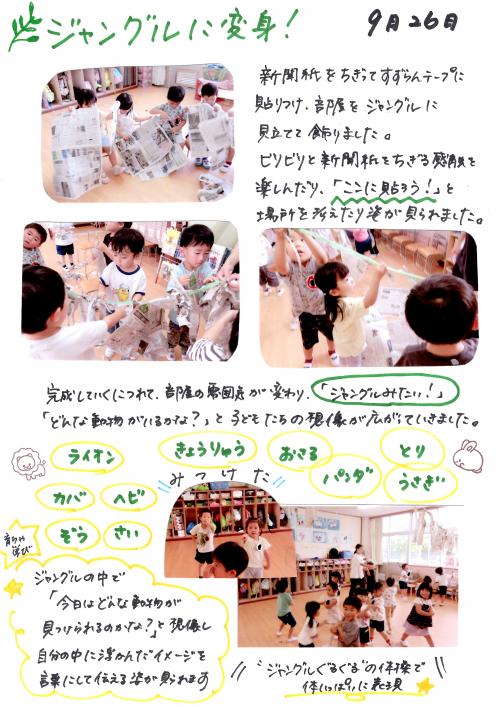 ジャングルに変身!
9月26日
新聞紙をちぎってすずらんテープに
貼りつけ、部屋をジャングルに
見立てて飾りました。
ビリビリと新聞紙をちぎる感触を
楽しんだり、「ここに貼ろう!」と
場所を考えたり姿が見られました。
完成していくにつれて、部屋の雰囲気が変わり、「ジャングルみたい!」
「どんな動物がいるかな?」と子どもたちの想像が広がっていきました。
ライオン
きょうりゅう
おさる
とり
パンダ
うさぎ
カバ
ヘビ
みつけた
ぞう
さい
育ちや
学び
ジャングルの中で
「今日はどんな動物が
見つけられるのかな?」と想像し
自分の中に浮かんだイメージを
言葉にして伝える姿が見られます
"ジャングルぐるぐる"の体操で
体いっぱいに表現